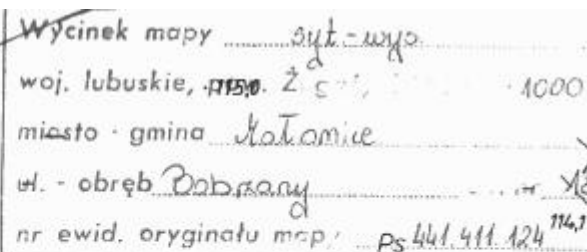 Wycinek mapy syt-wys.
woj. lubuskie, 115,0 Ż 1000
miasto - gmina Małomice
ul. - obręb Bobrzany
nr ewid. oryginału mapy Ps 441.411.124 114,1